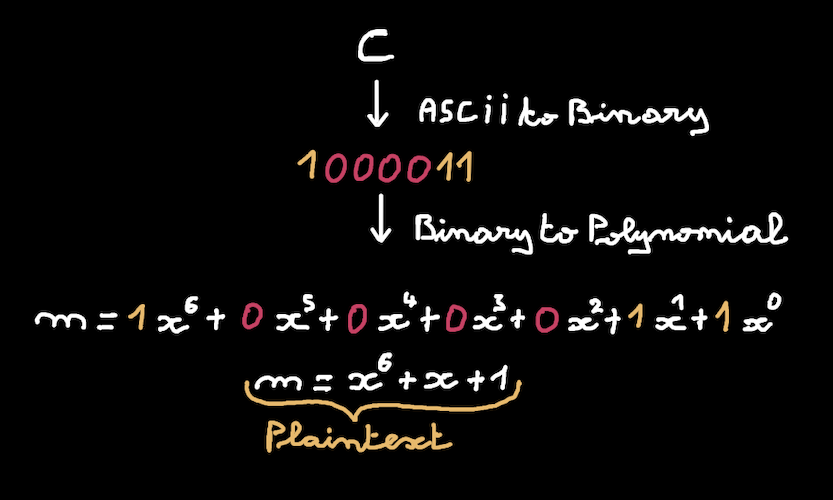 C
ASCii to Binary
1000011
Binary to Polynomial
m = 1x⁶ + 0x⁵ + 0x⁴ + 0x³ + 0x² + 1x¹ + 1x⁰
m = x⁶ + x + 1
Plaintext